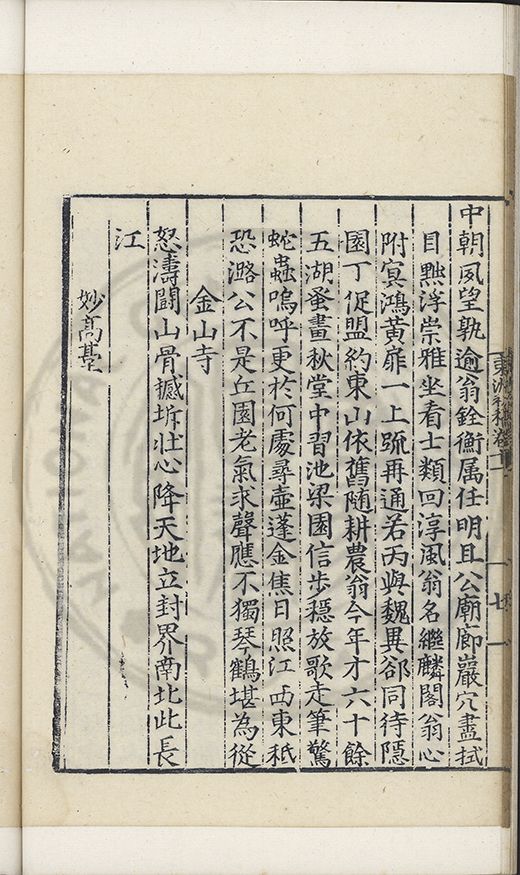 中朝夙望孰逾翁銓衡属任明且公廟廊巖穴盡拭
目黙浮崇雅坐看士類回淳風翁名繼麟閣翁心
附㝠鴻黄扉一上䟽再通若丙與魏異郤同待隱
園丁促盟約東山依舊随耕農翁今年才六十餘
五湖蚤畫秋堂中習池梁園信歩穏放歌走筆驚
蛇蟲嗚呼更於何處尋壺蓬金焦日照江西東秪
恐潞公不是丘園老氣求聲應不獨琴鶴堪為從
金山寺
怒濤鬪山骨撼坼壮心降天地立封界南北此長
江
妙高䑓